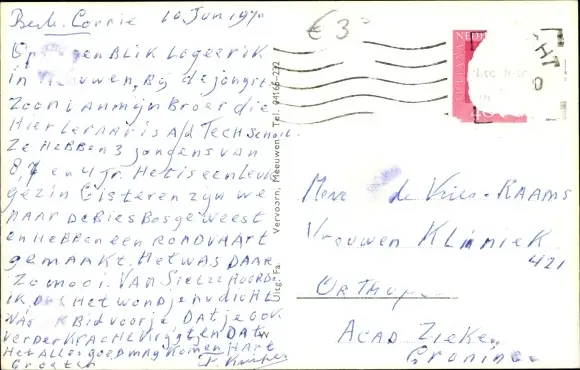 Beste Corrie 10 Jun 1970
Op 't ogenBlik Logeer ik
in Meeuwen, Bij de jongste
zoon van mijn Broer die
Hier Leraar is A/d Tech School.
Ze HeBBen 3 jongens van
8, 7 en 4 jr. Het is een Leuk
gezin Gisteren zijn we
naar de BiesBos geweest
en HeBBen een Rondvaart
gemaakt. Het was daar
zo mooi. Van Sietze Hoorde
ik, Het wondje
Bid voor je Dat je ook
verder Kracht krijgt en Dat
Het Alles goed mag Komen Hart
Groeten
Uitg. Fa. Vervoorn, Meeuwen Tel. 04166-272
€ 3
NEDERLAND
Mevr de Vries-RAAMS
Vrouwen KLinieK
421
ORTHOPE
ACAD Zieken
Groningen